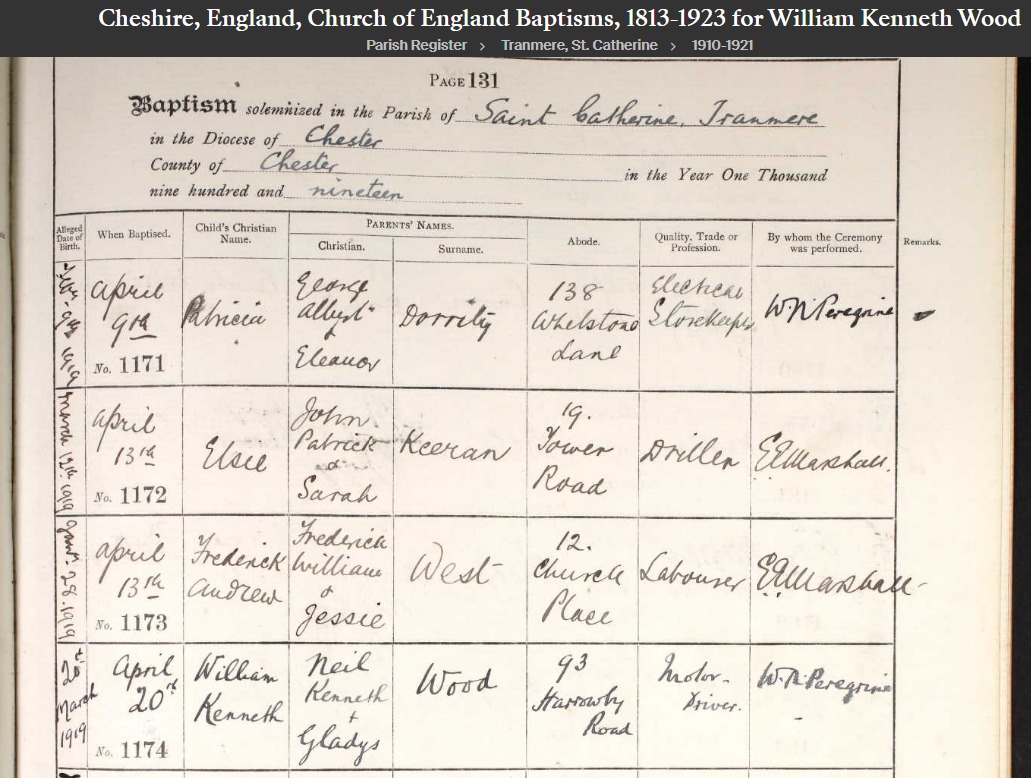 Cheshire, England, Church of England Baptisms, 1813-1923 for William Kenneth Wood
Parish Register > Tranmere, St. Catherine > 1910-1921
PAGE 131
Baptism solemnized in the Parish of Saint Catherine, Tranmere
in the Diocese of Chester
County of Chester in the Year One Thousand
nine hundred and nineteen
Alleged Date of Birth. When Baptised. Child's Christian Name. PARENTS' NAMES. Christian. Surname. Abode. Quality, Trade or Profession. By whom the Ceremony was performed. Remarks.
9th 1919
April
9th
No. 1171
Patricia
George
Albert
&
Eleanor
Dorrity
138
Whetstone
Lane
Electrical
Storekeeper
W N Peregrine
March 12th 1919
April
13th
No. 1172
Elsie
John
Patrick
&
Sarah
Keeran
19.
Tower
Road
Driller
E A Marshall.
Jany. 28. 1919
April
13th
No. 1173
Frederick
Andrew
Frederick
William
&
Jessie
West
12.
Church
Place
Labourer
E A Marshall
20th
March
1919
April
20th
No. 1174
William
Kenneth
Neil
Kenneth
+
Gladys
Wood
93
Harrowby
Road
Motor-
Driver.
W. N. Peregrine